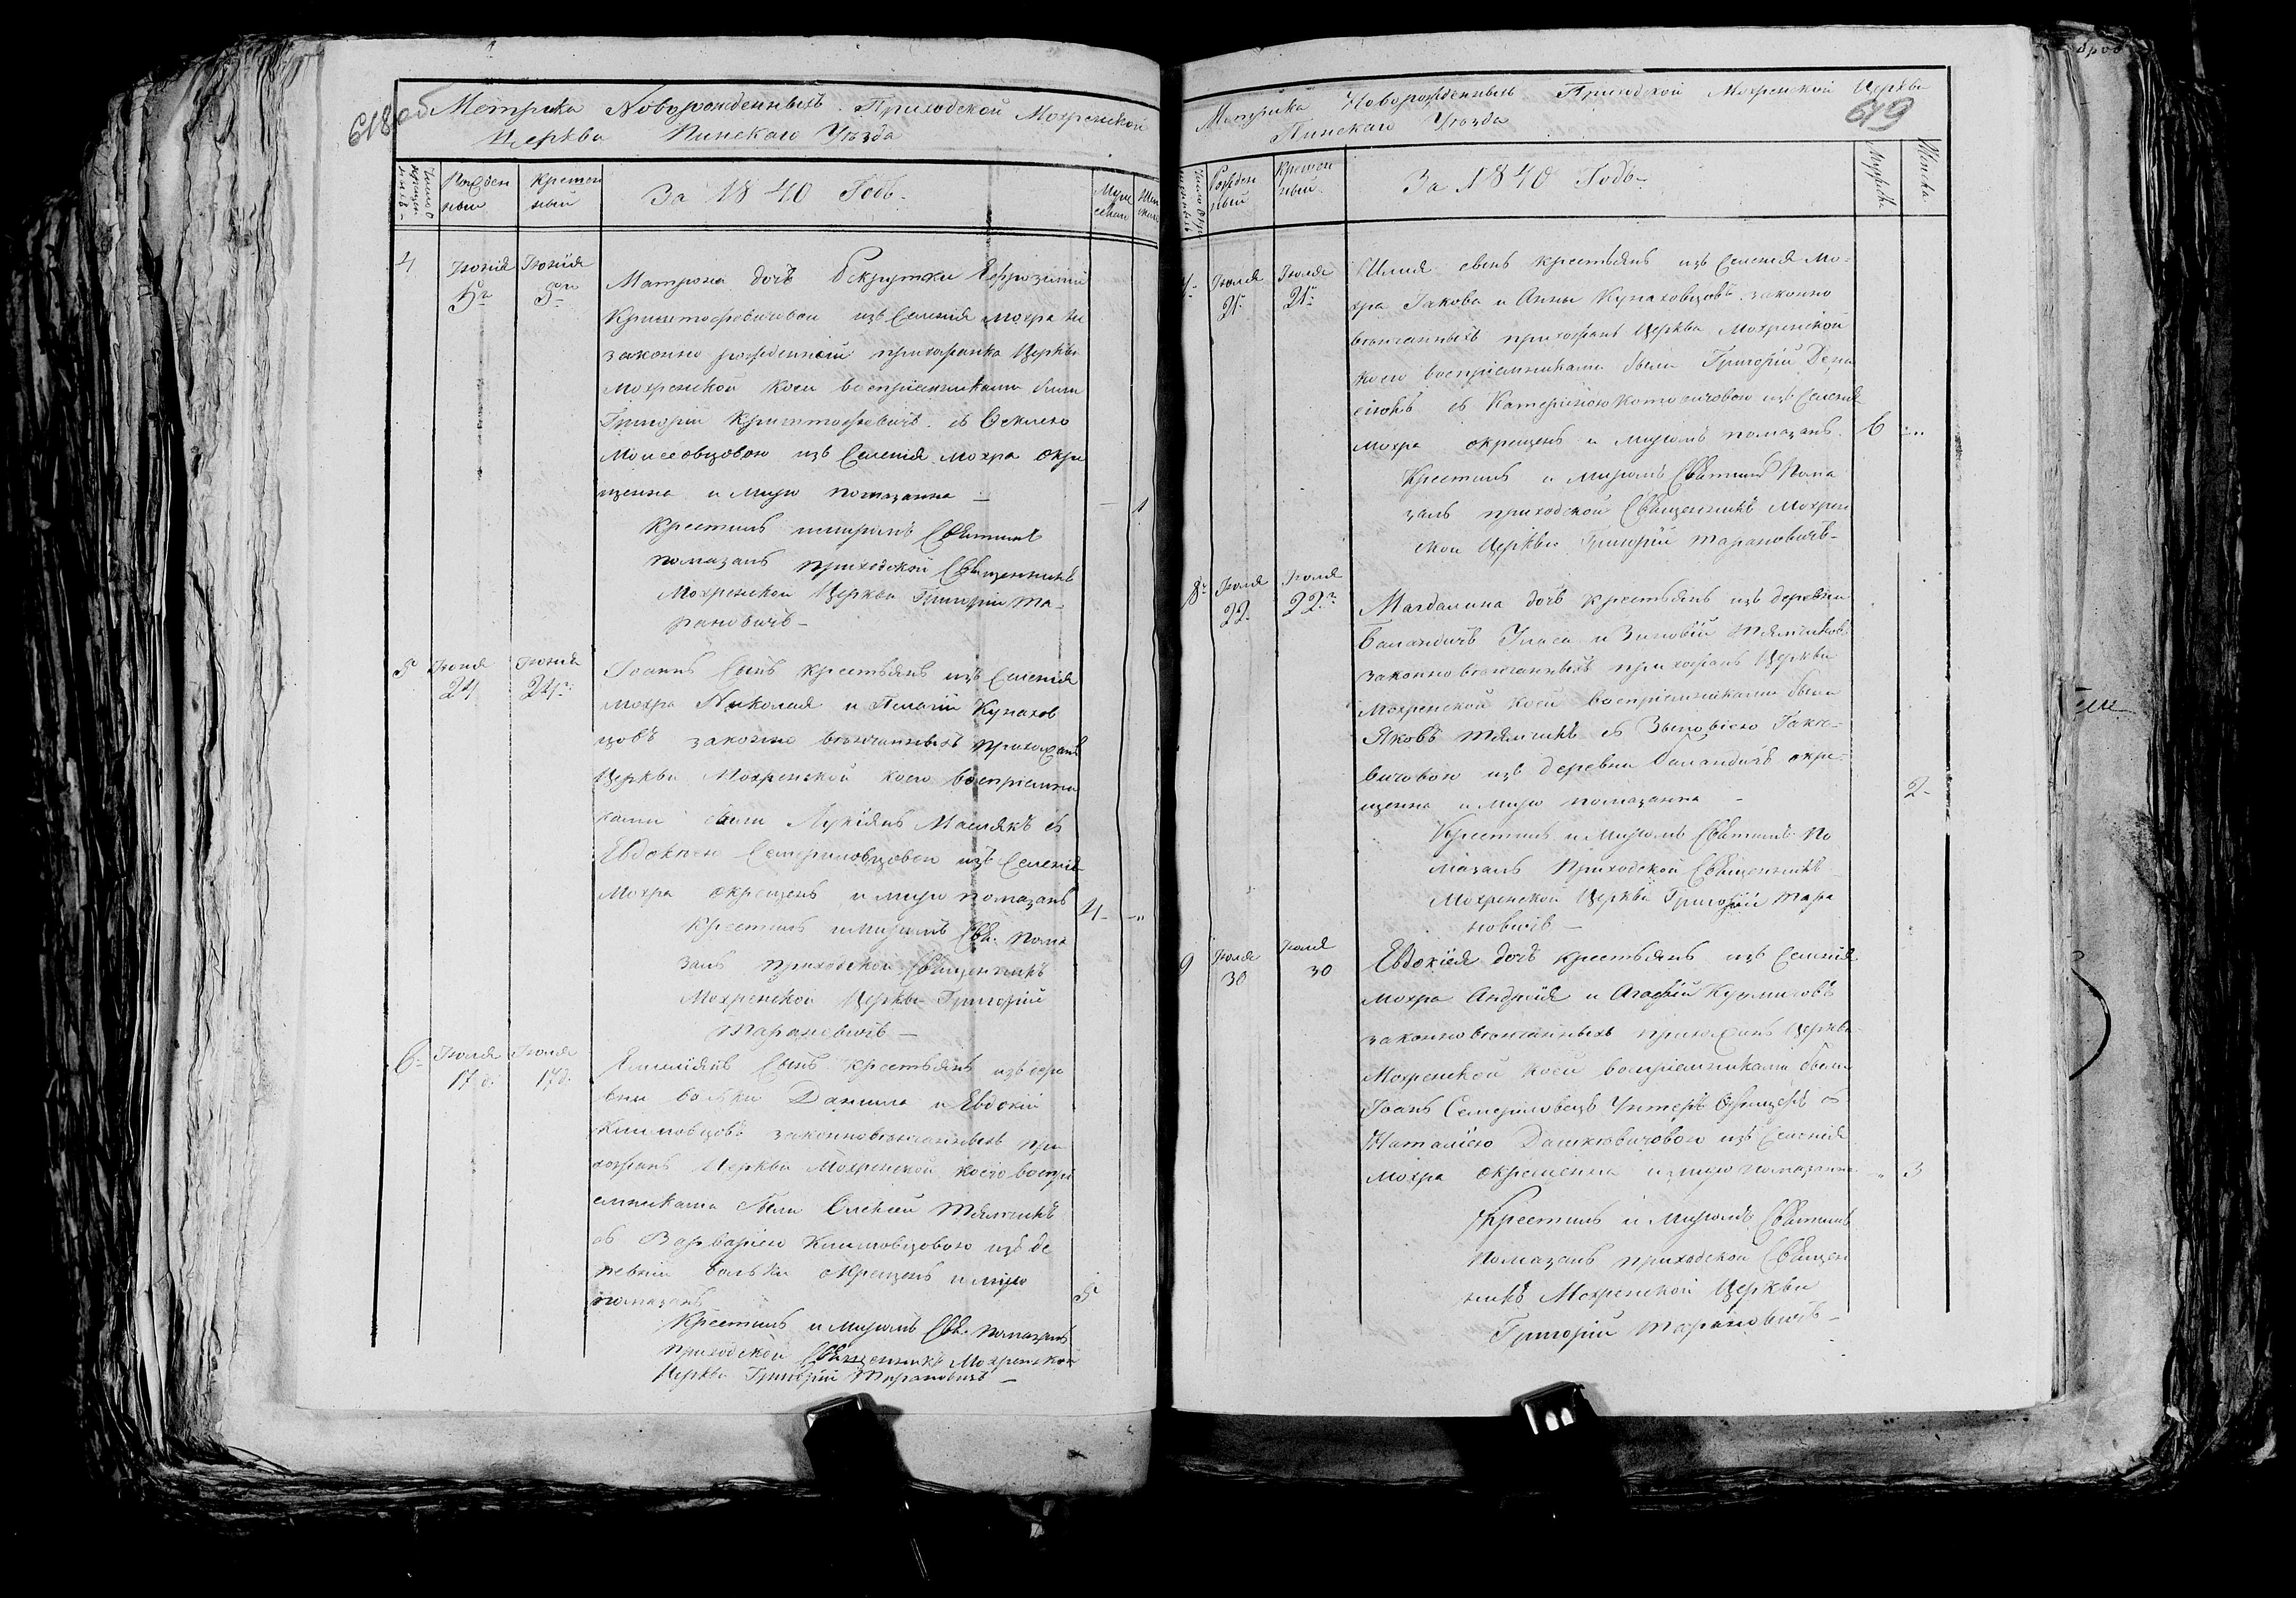 618об
Метрика Новорожденныхъ Приходской Мохренской
Церкви Пинскаго Уѣзда
Рожден
ный
Крещен
ный
За 1840 Годъ
Муж
Жен
4
Іюнія
5го
Іюнія
5го
Матрона дочъ Рекрутки Ефрозиніи
Криштофовичовой изъ Селенія Мохра не
законно рожденной прихожанка Церкви
Мохренской коеи воспріемниками были
Григорій Криштофовичъ съ
Моисеовцовою изъ Селенія Мохра окре
щенна и миро помазанна —
1
Крестилъ и миромъ Святымъ
помазалъ приходской Священникъ
Мохренской Церкви Григорій Та-
рановичъ —
5
Іюнія
24
Іюнія
24
Іоаннъ Сынъ крестьянъ изъ Селенія
Мохра Николая и Пелагіи Кулахов
цовъ законно вѣнчанныхъ прихожанъ
Церкви Мохренской коего воспріемни
ками были Лукіянъ Маслякъ съ
Евдокіею Семериловцовою изъ Селенія
Мохра окрещенъ и миро помазанъ
4 - „
Крестилъ и миромъ Свя. пома
залъ приходской Священникъ
Мохренской Церкви Григорій
Тарановичъ —
6
Іюля
17 д.
Іюля
17 д.
Емиліянъ Сынъ крестьянъ изъ дере
вни Вольки Данила и Евдокіи
Климовцовъ законновѣнчанныхъ при
хожанъ Церкви Мохренской коего воспрі
емниками были Олексій
съ Варварією Климовцовою изъ де
ревни Вольки окрещенъ и миро
помазанъ
5
Крестилъ и миромъ Свя. помазалъ
приходской Священникъ Мохренской
Церкви Григорій Тарановичъ —
Метрика Новорожденныхъ Приходской Мохренской Церкви
619
Пинскаго Уѣзда
Рожден
ный
Крещен
ный
За 1840 Годъ
Мужеска
Женска
7
Іюля
21
Іюля
21
Илия сынъ крестьянъ изъ Селенія Мо-
хра Іакова и Анны Кулаховцовъ законно
вѣнчанныхъ прихожанъ Церкви Мохренской
коего воспріемниками были Григорій Дени
сюкъ съ Катериною изъ Селенія
Мохра окрещенъ и миромъ помазанъ
6
Крестилъ и миромъ Святымъ Пома
залъ приходской Священникъ Мохрен
ской Церкви Григорій Тарановичъ -
8
Іюля
22
Іюля
22
Магдалина дочъ крестьянъ изъ деревни
Баландичъ Уласа и Зиновіи
законно вѣнчанныхъ прихожанъ Церкви
Мохренской коеи воспріемниками были
Яковъ съ Зѣновіею Гаке-
вичовою изъ деревни Баландичъ окре-
щенна и миро помазанна -
2 -
Крестилъ и миромъ Святымъ По
мазалъ Приходской Священникъ
Мохренской Церкви Григорій Тара
новичъ —
9
Іюля
30
Іюля
30
Евдокія дочъ крестьянъ изъ Селенія
Мохра Андрія и Агафіи Кузмичовъ
законновѣнчанныхъ прихожанъ Церкви
Мохренской коеи воспріемниками были
Іоанъ Семериловецъ Унтеръ Офицеръ съ
Наталією Дашкевичовою изъ Селенія
Мохра окрещенна и миро помазанна
„ 3
Крестилъ и миромъ Святымъ
помазалъ приходской Священ
никъ Мохренской Церкви
Григорій Тарановичъ —